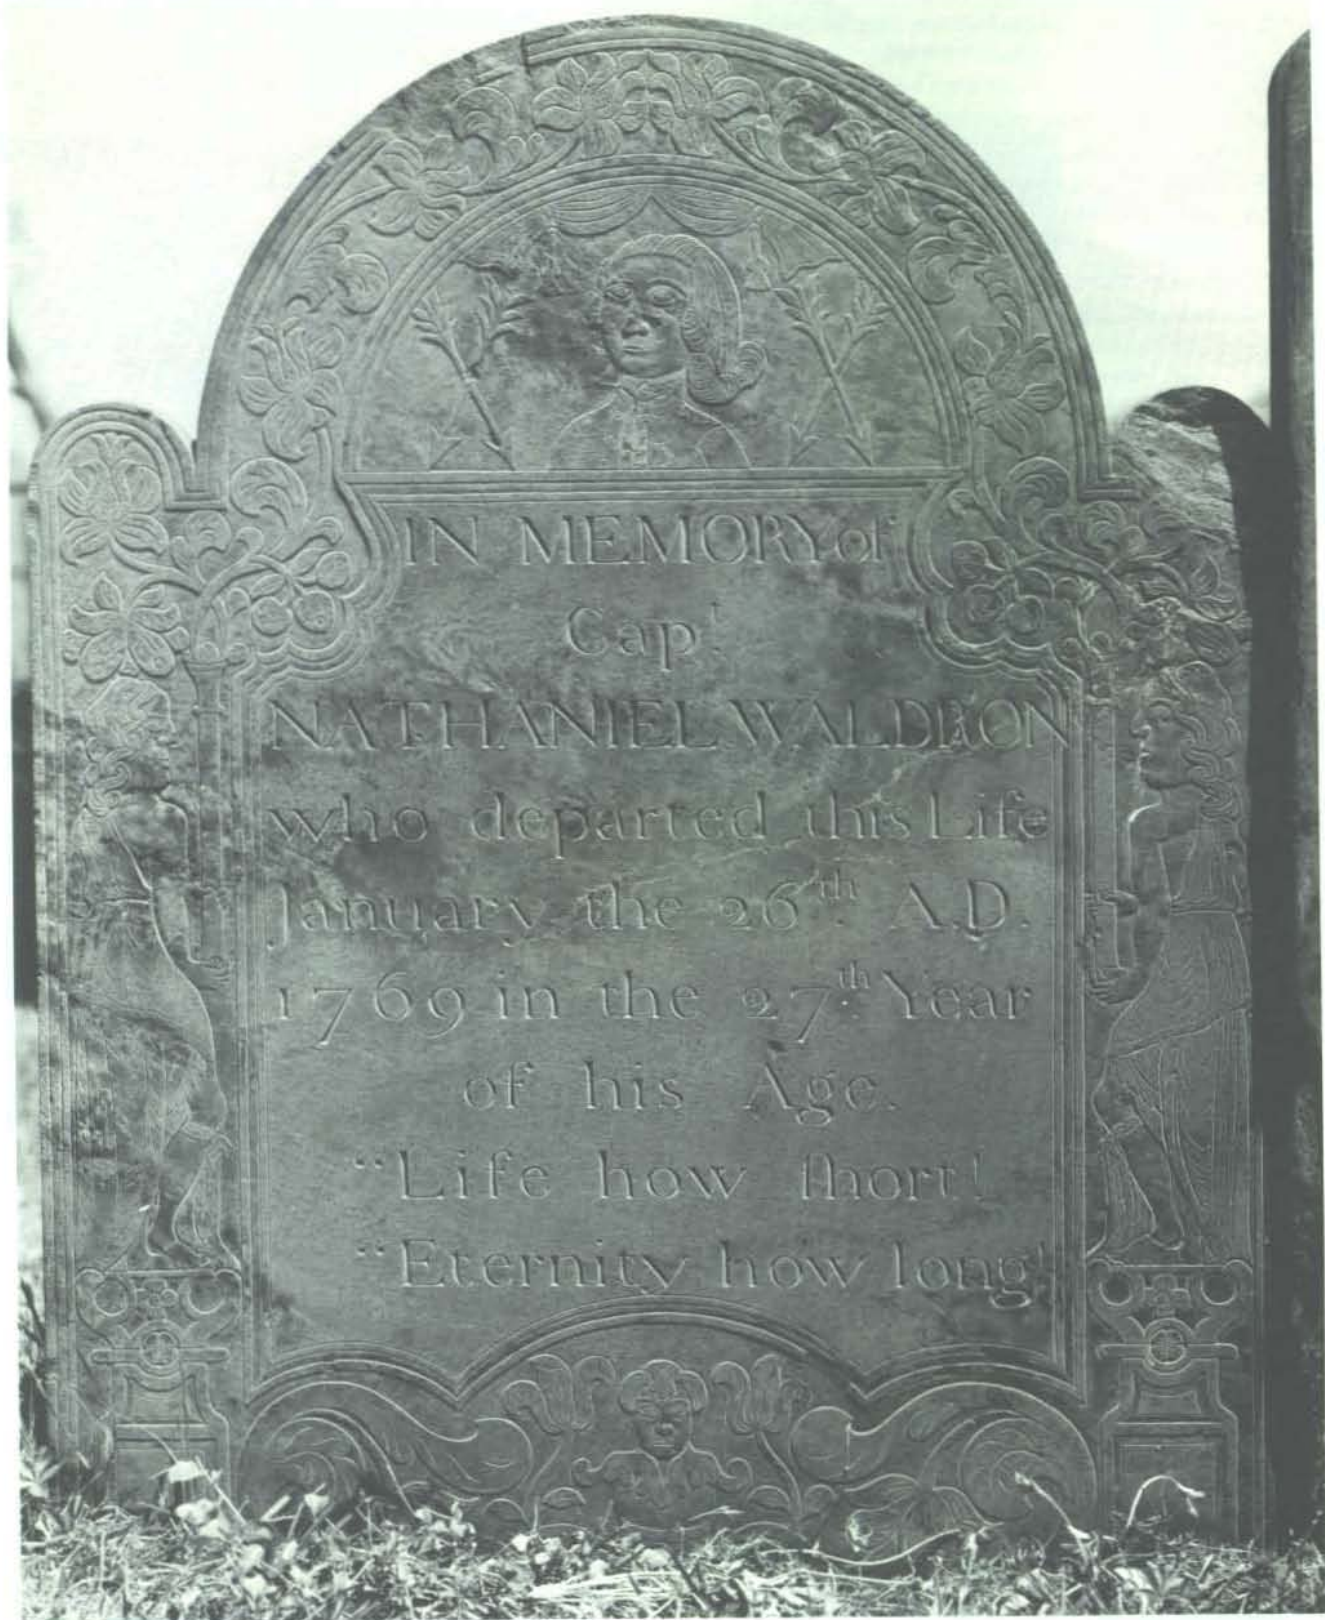 IN MEMORY of
Capᵗ.
NATHANIEL WALDRON
who departed this Life
January the 26ᵗʰ. A.D.
1769 in the 27ᵗʰ. Year
of his Age.
“Life how ſhort!
“Eternity how long!